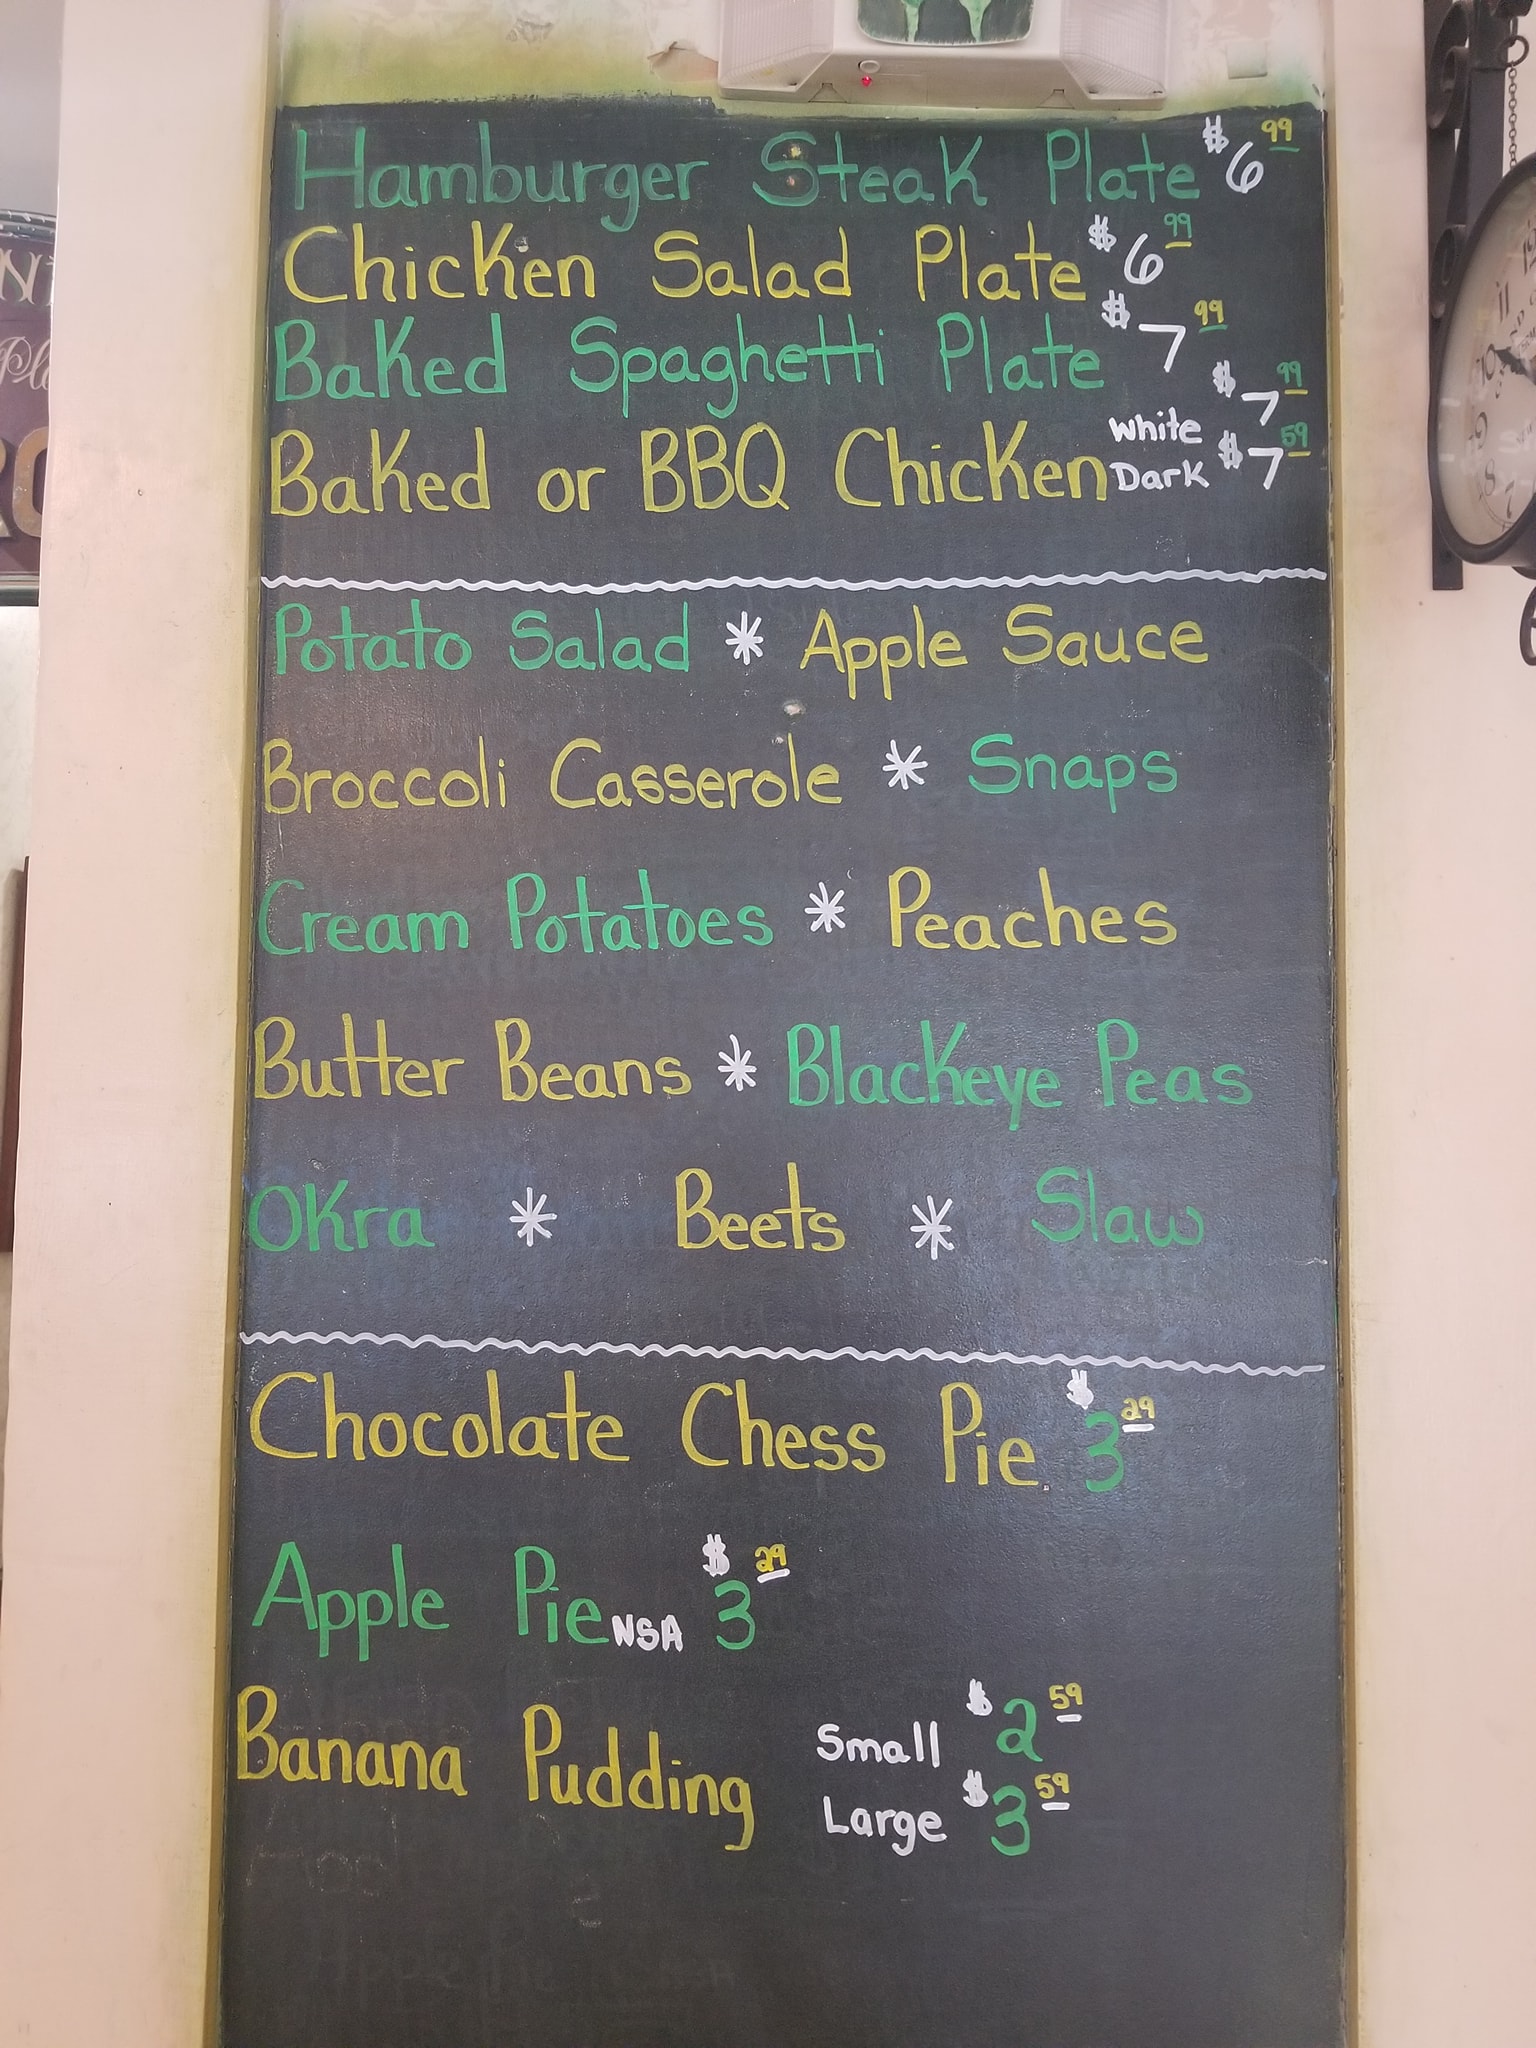 Hamburger Steak Plate $6.99
Chicken Salad Plate $6.99
Baked Spaghetti Plate $7.99
Baked or BBQ Chicken White $7.99
Dark $7.59
Potato Salad * Apple Sauce
Broccoli Casserole * Snaps
Cream Potatoes * Peaches
Butter Beans * Blackeye Peas
Okra * Beets * Slaw
Chocolate Chess Pie $3.29
Apple Pie NSA $3.29
Banana Pudding Small $2.59
Large $3.59